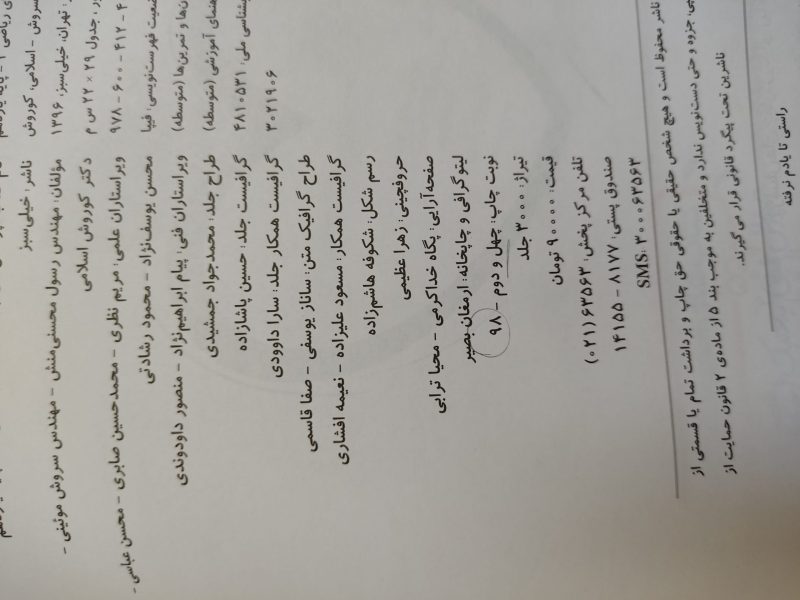 ناشر: خیلی‌سبز
مؤلفان: مهندس رسول محسنی‌منش - مهندس سروش موئینی -
دکتر کوروش اسلامی
ویراستاران علمی: مریم نظری - محمدحسین صابری - محسن عباسی -
محسن یوسف‌نژاد - محمود رشادتی
ویراستاران فنی: پیام ابراهیم‌نژاد - منصور داودوندی
طراح جلد: محمدجواد جمشیدی
گرافیست جلد: حسین پاشازاده
گرافیست همکار جلد: سارا داوودی
طراح گرافیک متن: ساناز یوسفی - صفا قاسمی
گرافیست همکار: مسعود علیزاده - نعیمه افشاری
رسم شکل: شکوفه هاشم‌زاده
حروفچینی: زهرا عظیمی
صفحه‌آرایی: پگاه خداکرمی - محیا ترابی
لیتوگرافی و چاپخانه: ارمغان بصیر
نوبت چاپ: چهل و دوم - ۹۸
تیراژ: ۳۰۰۰ جلد
قیمت: ۹۰۰۰۰ تومان
تلفن مرکز پخش: ۶۳۵۶۳(۰۲۱)
صندوق پستی: ۸۱۷۷ - ۱۴۱۵۵
SMS: ۳۰۰۰۶۳۵۶۳
: تهران، خیلی‌سبز، ۱۳۹۶
سروش - اسلامی، کوروش
جدول ۲۹ × ۲۲ س م
۹۷۸ - ۶۰۰ - ۴۱۲ - ۴
ضعیت فهرست‌نویسی: فیپا
ن‌ها و تمرین‌ها (متوسطه)
هنمای آموزشی (متوسطه)
بشناسی ملی: ۴۸۱۰۵۳۱
۳۰۲۱۹۰۶
ناشر محفوظ است و هیچ شخص حقیقی یا حقوقی حق چاپ و برداشت تمام یا قسمتی از
جزوه و حتی دست‌نویس ندارد و متخلفین به موجب بند ۵ از ماده‌ی ۲ قانون حمایت از
ناشرین تحت پیگرد قانونی قرار می‌گیرند.
راستی تا یادم نرفته